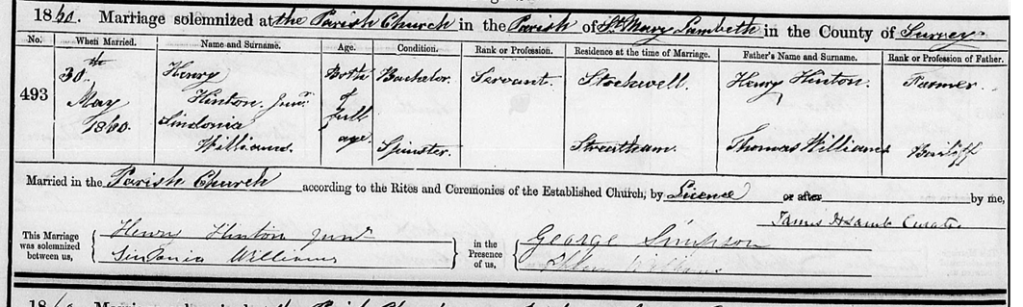 1860. Marriage solemnized at the Parish Church in the Parish of St Mary Lambeth in the County of Surrey
No. When Married. Name and Surname. Age. Condition. Rank or Profession. Residence at the time of Marriage. Father's Name and Surname. Rank or Profession of Father.
493 30th May 1860. Henry Hinton. Junr. Both of Full age. Bachelor Servant. Stockwell. Henry Hinton. Farmer.
Sindonia Williams. Spinster. Streatham. Thomas Williams Bailiff
Married in the Parish Church according to the Rites and Ceremonies of the Established Church, by Licence or after by me,
James Curate
This Marriage was solemnized between us, Henry Hinton Junr in the Presence of us, George Simpson
Sindonia Williams Williams
1860 Marriage solemnized at the Parish Church